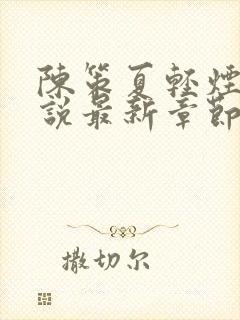 陳策夏輕煙
說最新章節
撒切尔